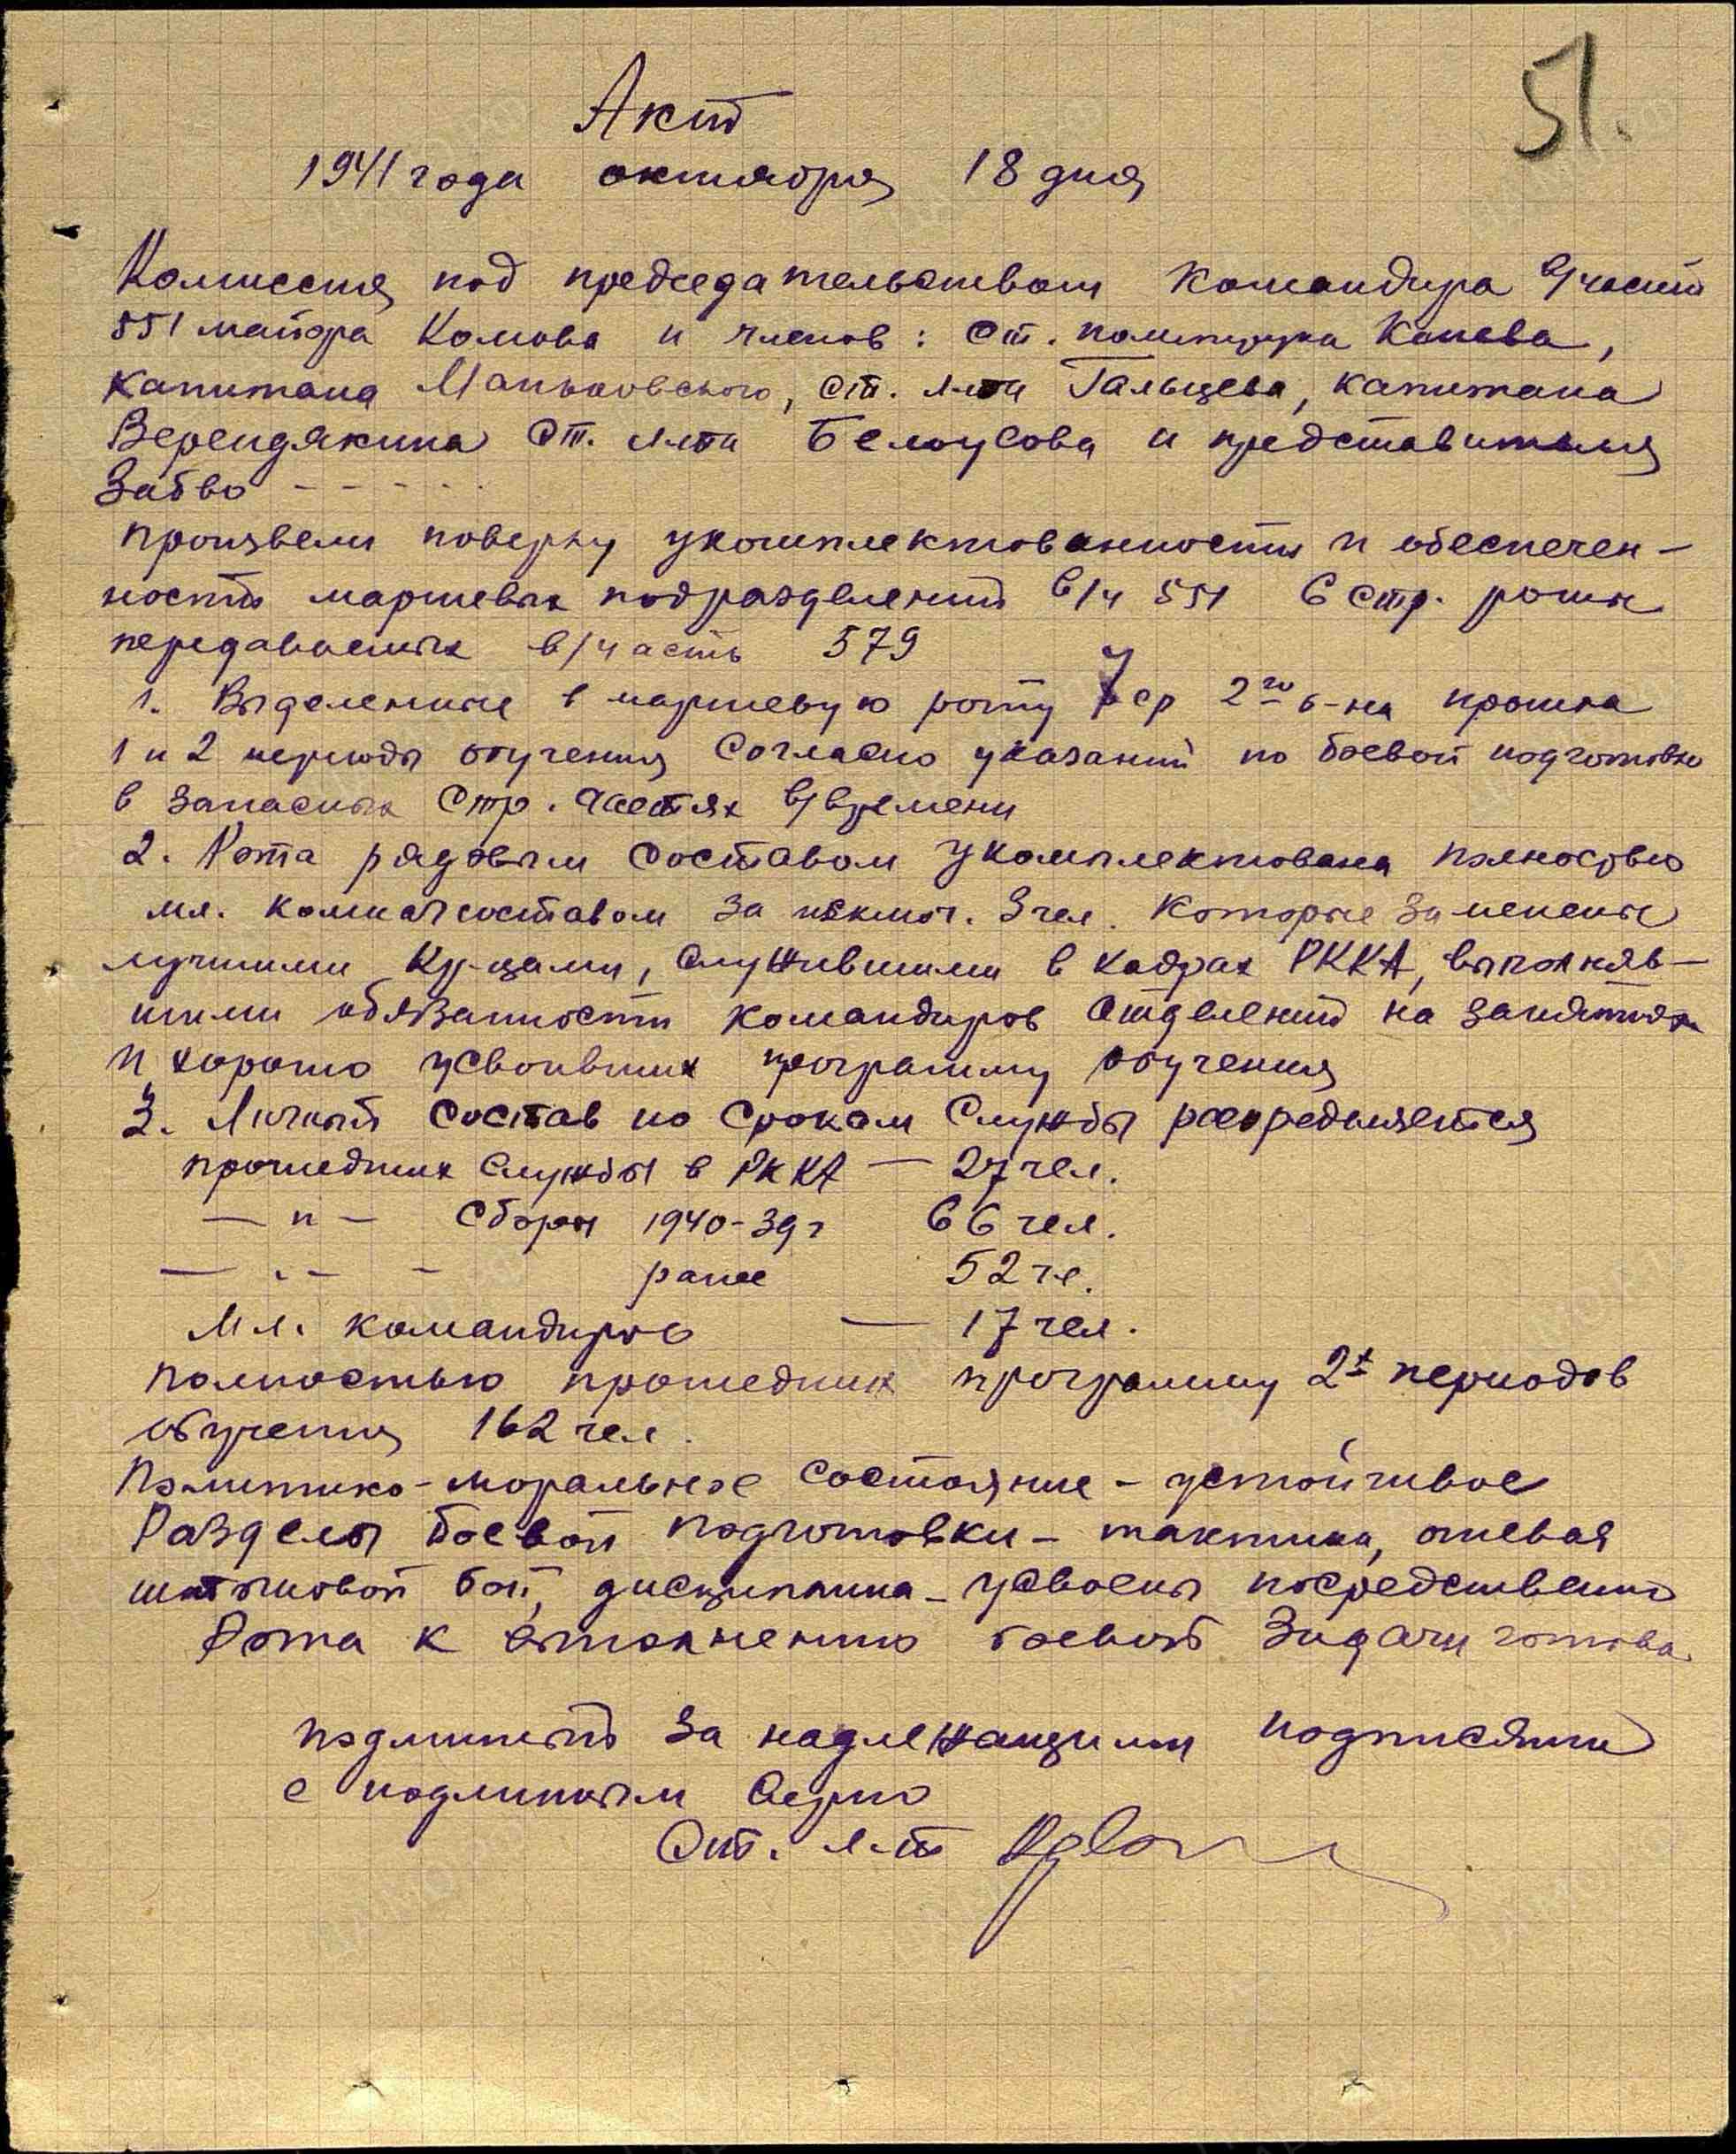 51.
Акт
1941 года октября 18 дня
Комиссия под председательством командира в/части
551 майора Комова и членов: ст. политрука Конева,
капитана Маньковского, ст. л-та Гальцева, капитана
Верендякина ст. л-та Белоусова и представителя
ЗабВО - - - - -
произвели поверку укомплектованности и обеспечен-
ности маршевых подразделений в/ч 551 6 стр. роты
передаваемых в/часть 579
1. Выделенные в маршевую роту 7 ср 2го б-на прошла
1 и 2 периоды обучения согласно указаний по боевой подготовке
в запасных стр. частях в/времени
2. Рота рядовым составом укомплектована полностью
мл. комначсоставом за исключ. 3 чел. которые заменены
лучшими кр-цами, служившими в кадрах РККА, выполняв-
шими обязанности командиров отделений на занятиях
и хорошо усвоивших программу обучения
3. Личный состав по срокам службы распределяется
прошедших службы в РККА — 27 чел.
— " — сборы 1940-39 г 66 чел.
— " — ранее 52 че.
Мл. командиров — 17 чел.
полностью прошедших программу 2х периодов
обучения 162 чел.
Политико-моральное состояние - устойчивое
Разделы боевой подготовки - тактика, огневая
штыковой бой, дисциплина - усвоены посредственно
Рота к выполнению боевой задачи готова
подлиный за надлежащими подписями
с подлиным верно
Ст. л-т